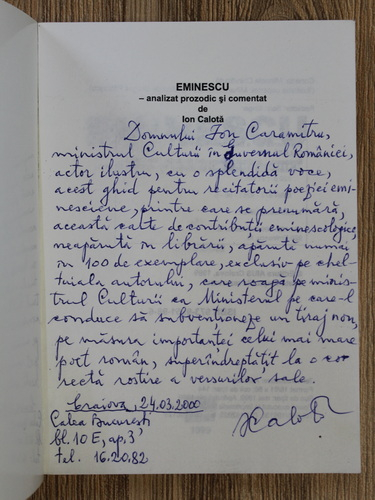 EMINESCU
– analizat prozodic și comentat
de
Ion Calotă
Domnului Ion Caramitru,
ministrul Culturii în Guvernul României,
actor ilustru, cu o splendidă voce,
acest ghid pentru recitatorii poeziei emi-
nesciene, printre care se prenumără,
această carte de contribuții eminescologice,
neapărută în librării, apărută numai
în 100 de exemplare, exclusiv pe chel-
tuiala autorului, care roagă pe minis-
trul Culturii ca Ministerul pe care-l
conduce să subvenționeze un tiraj nou,
pe măsura importanței celui mai mare
poet român, superîndreptățit la o co-
rectă rostire a versurilor sale.
Craiova, 24.03.2000
Calea București
bl. 10 E, ap. 3
tel. 16.20.82
ICalotă